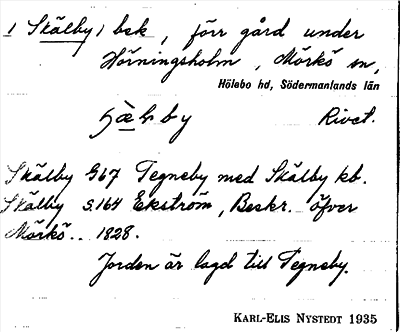 / Skälby / bek , förr gård under
Hörningsholm , Mörkö sn,
Hölebo hd, Södermanlands län
Rivet.
Skälby G67 Tegneby med Skälby kb.
Skälby S.164 Ekström, Beskr. öfver
Mörkö.. 1828.
Jorden är lagd till Tegneby.
KARL-ELIS NYSTEDT 1935